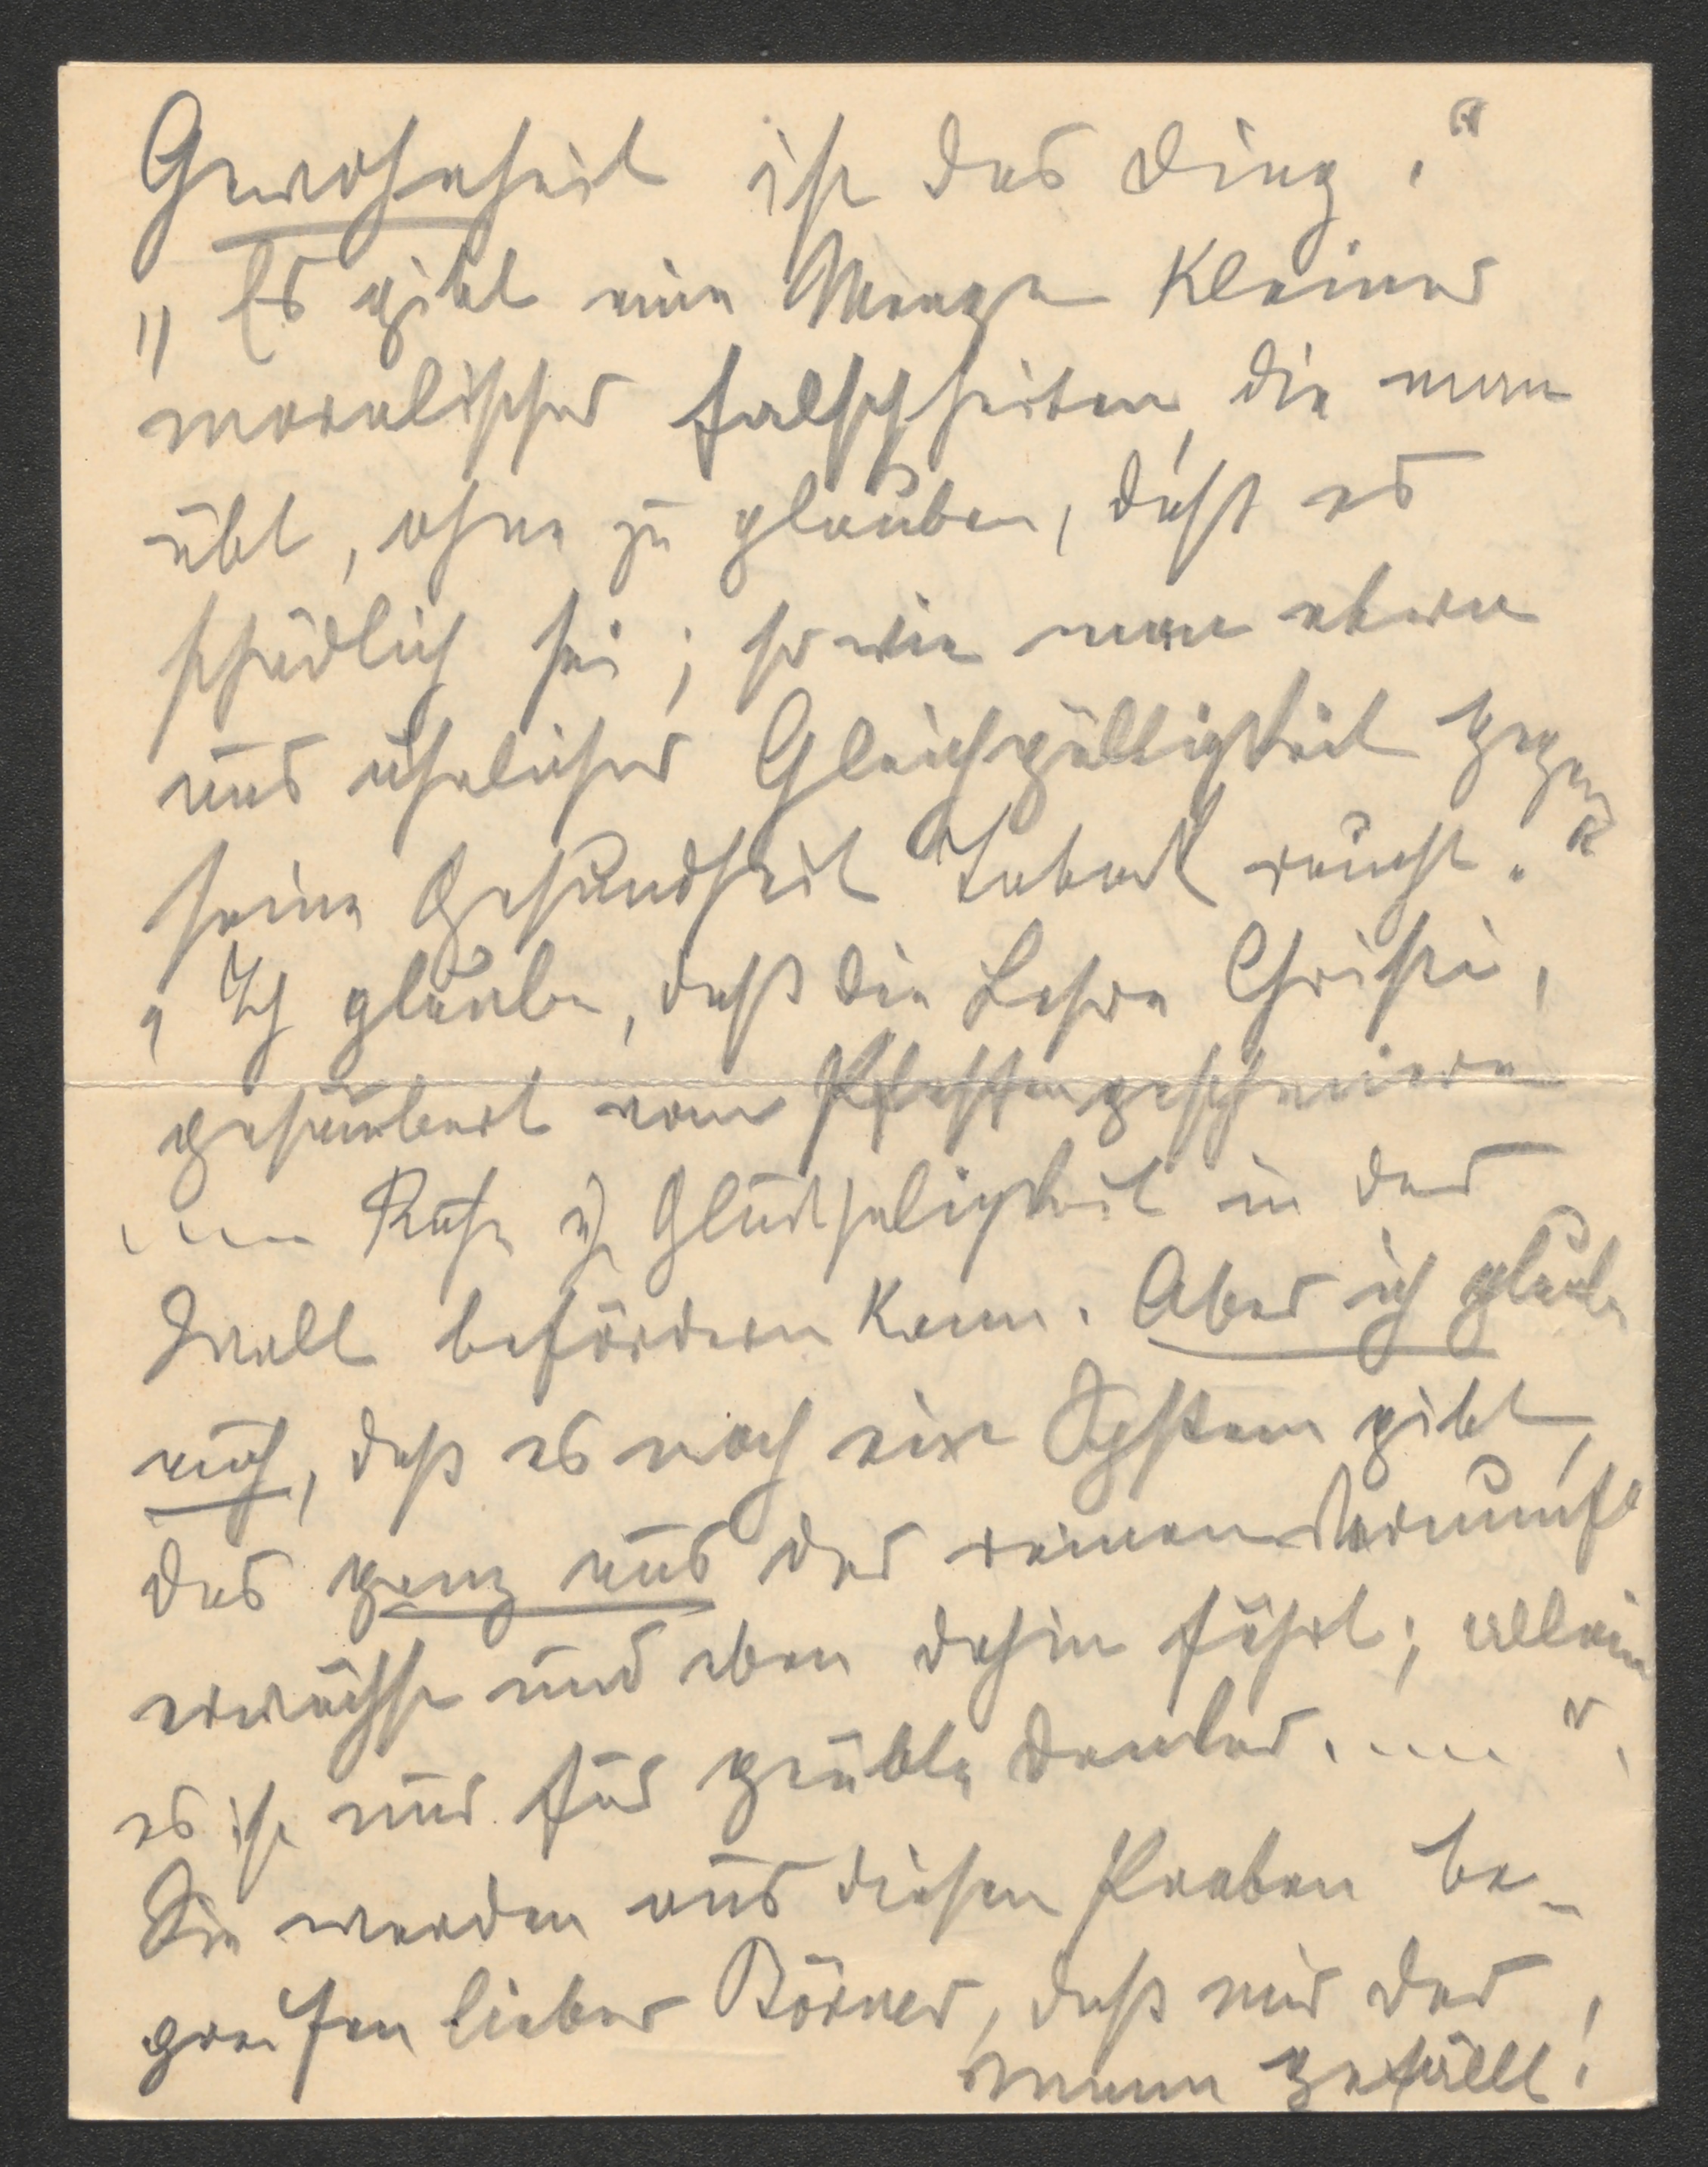 Gewohnheit ist das Ding."
„Es gibt eine Menge kleiner
moralischer Falschheiten, die man
übt, ohne zu glauben, daß es
schädlich sei; so wie man etwa
aus ähnlicher Gleichgültigkeit gegen
seine Gesundheit Tabak raucht."
„Ich glaube, daß die Lehre Christi,
gesäubert vom Pfaffengeschmiere
.... Ruhe u. Glückseligkeit in der
Welt befördern kann. Aber ich glaube
auch, daß es noch ein System gibt,
das ganz aus der reinen Vernunft
erwächst und eben dahin führt; allein
es ist nur für geübte Denker. ...."
Sie werden aus diesen Proben be-
greifen lieber Börner, daß mir der
Mann gefällt!